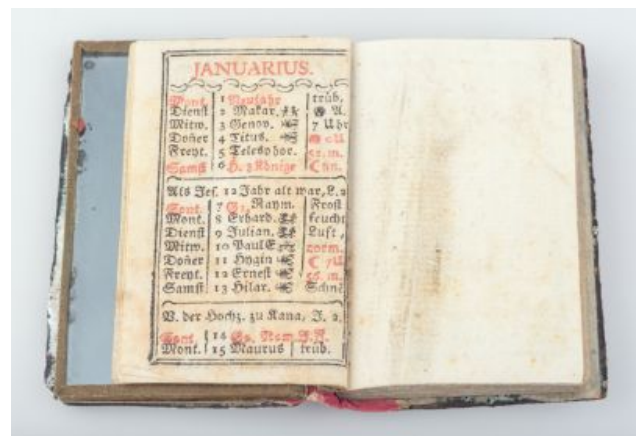 JANUARIUS.
Mont. 1 Neujahr trüb,
Dienst 2 Makar. A.
Mitw. 3 Genov. 7 Uhr
Doñer 4 Titus.
Freyt. 5 Telesphor. 52. m.
Samst 6 H. 3 Könige
Als Jes. 12 Jahr alt war, L. 2
Sont. 7 Raym. Frost
Mont. 8 Erhard. feucht
Dienst 9 Julian. Luft,
Mitw. 10 Paul E. vorm.
Doñer 11 Hygin
Freyt. 12 Ernest 56. m.
Samst 13 Hilar. Schnè
V. der Hochz. zu Kana, J. 2.
Sont. 14 Nam
Mont. 15 Maurus trüb.